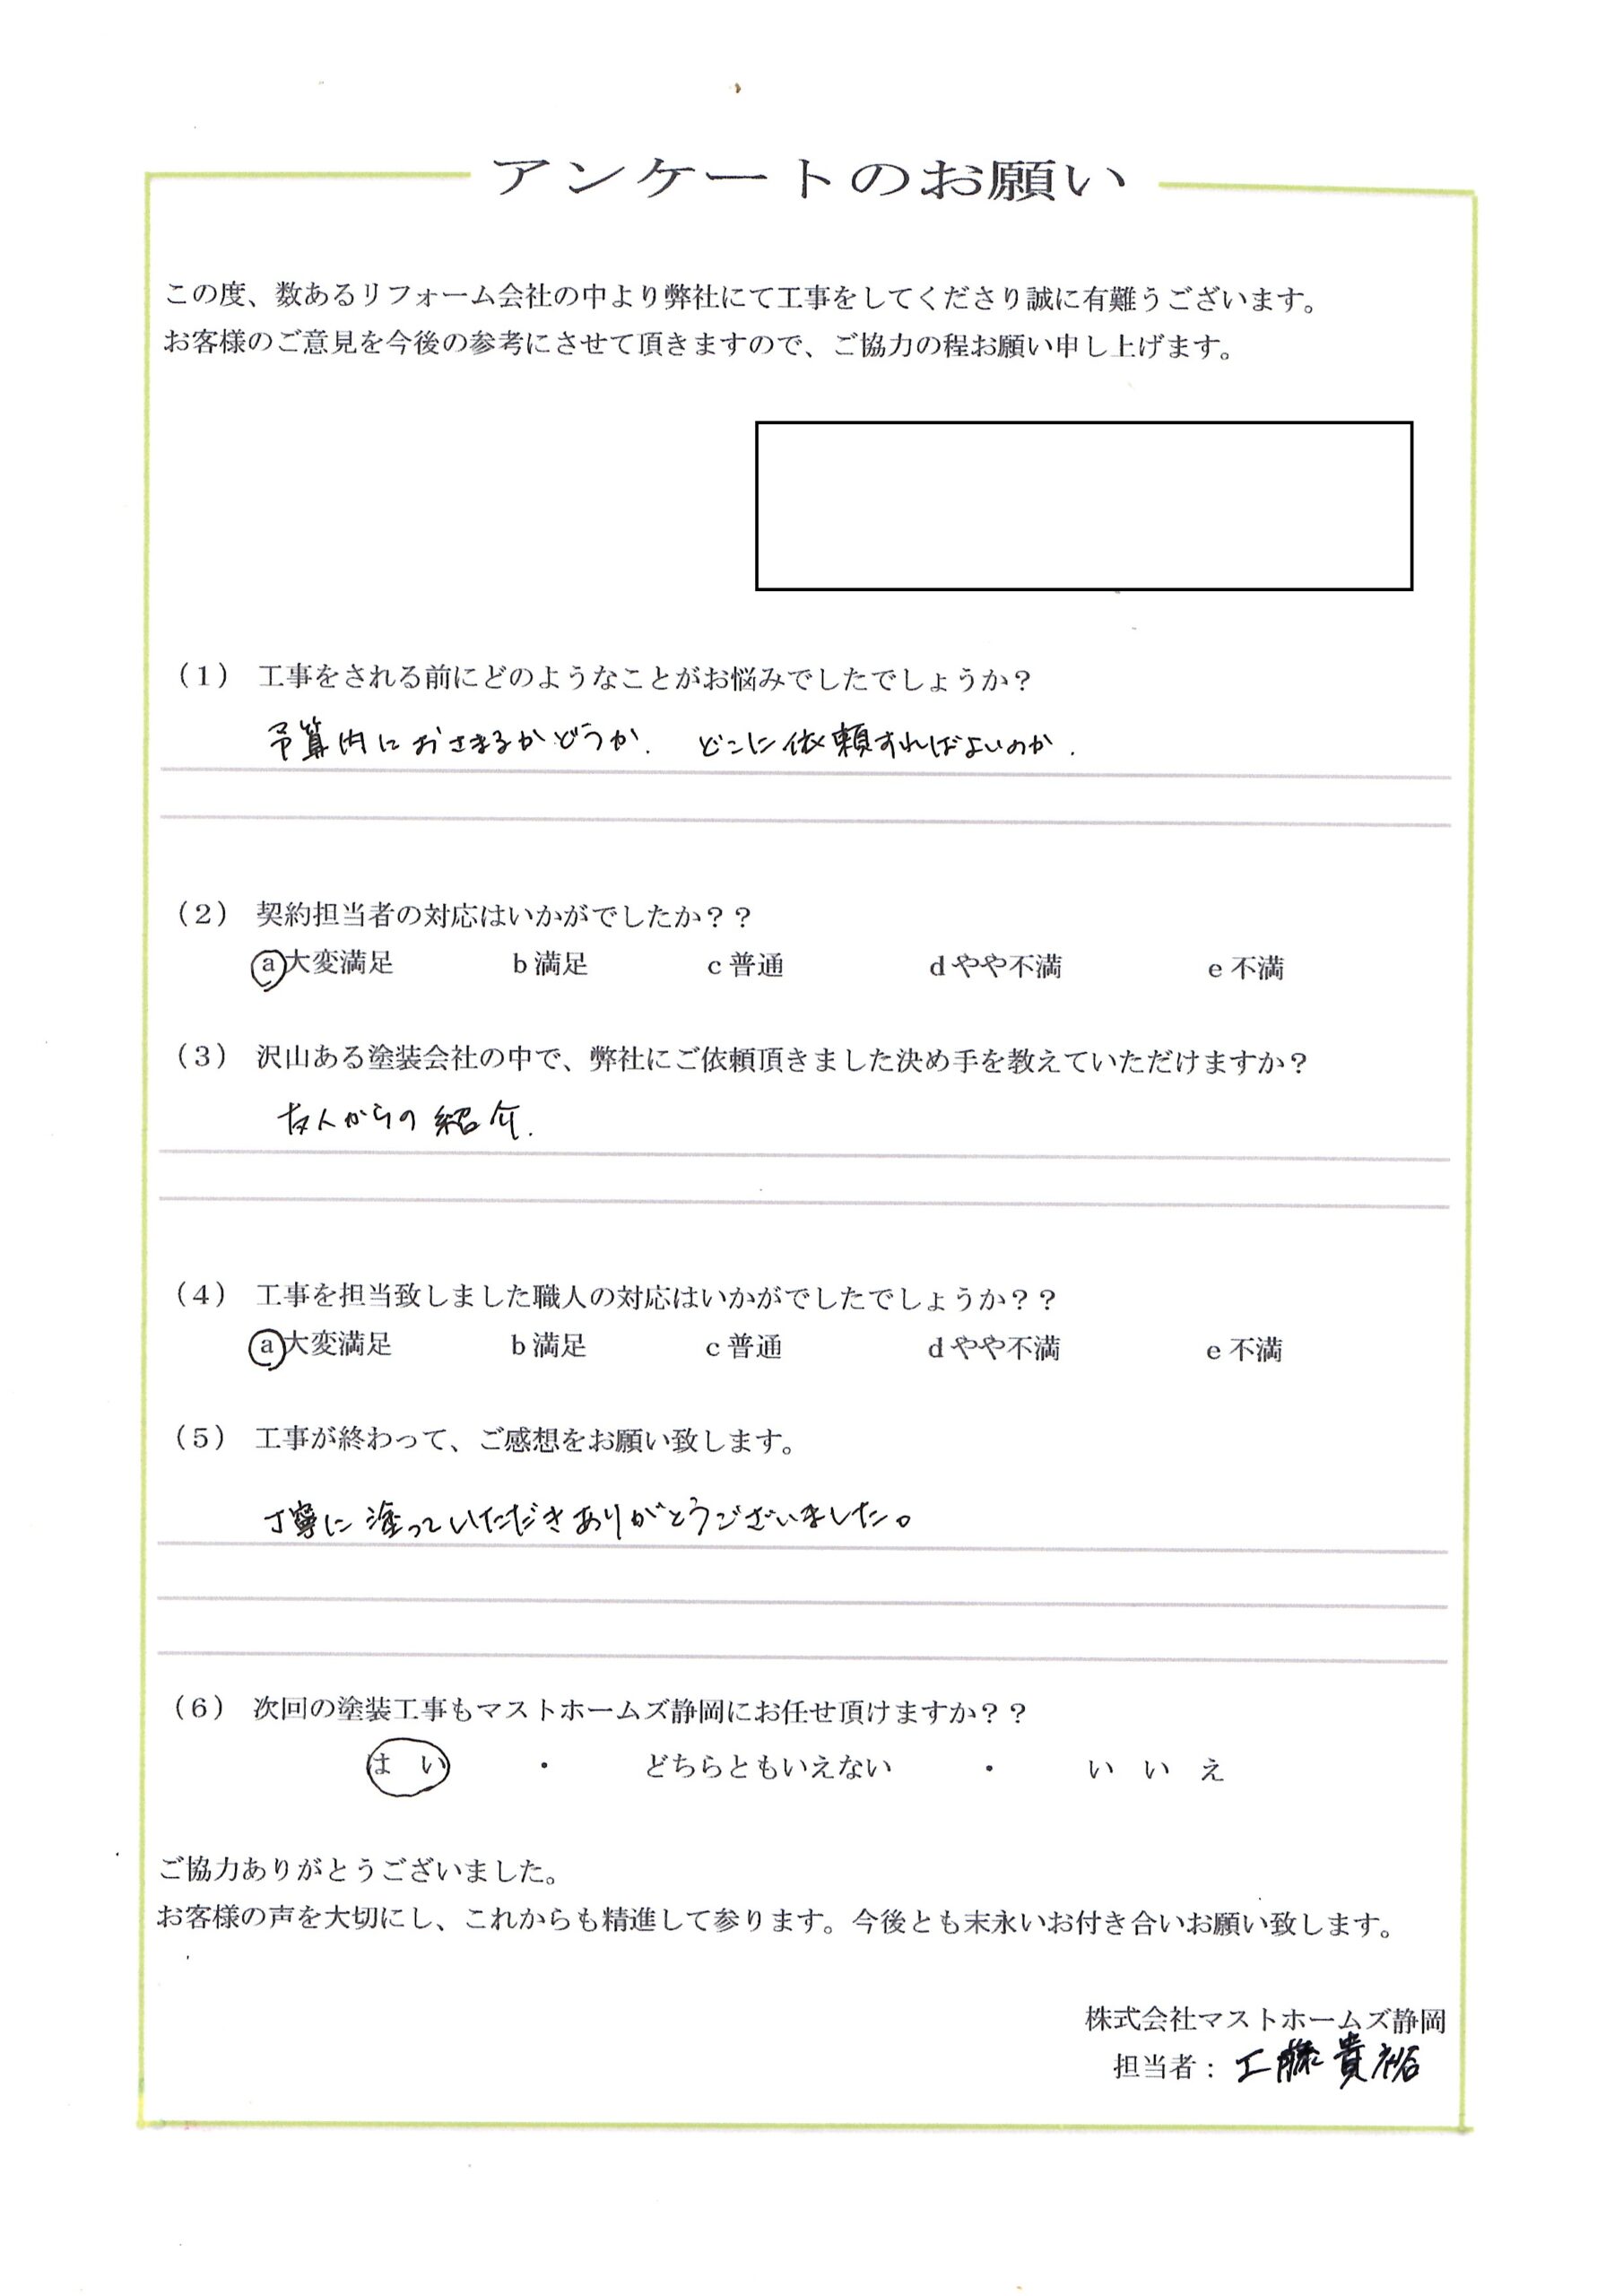 アンケートのお願い
この度、数あるリフォーム会社の中より弊社にて工事をしてくださり誠に有難うございます。
お客様のご意見を今後の参考にさせて頂きますので、ご協力の程お願い申し上げます。
（1） 工事をされる前にどのようなことがお悩みでしたでしょうか？
予算内におさまるかどうか. どこに依頼すればよいのか.
（2） 契約担当者の対応はいかがでしたか？？
a 大変満足 b 満足 c 普通 d やや不満 e 不満
（3） 沢山ある塗装会社の中で、弊社にご依頼頂きました決め手を教えていただけますか？
友人からの紹介.
（4） 工事を担当致しました職人の対応はいかがでしたでしょうか？？
a 大変満足 b 満足 c 普通 d やや不満 e 不満
（5） 工事が終わって、ご感想をお願い致します。
丁寧に塗っていただきありがとうございました。
（6） 次回の塗装工事もマストホームズ静岡にお任せ頂けますか？？
はい ・ どちらともいえない ・ いいえ
ご協力ありがとうございました。
お客様の声を大切にし、これからも精進して参ります。今後とも末永いお付き合いお願い致します。
株式会社マストホームズ静岡
担当者：工藤貴裕